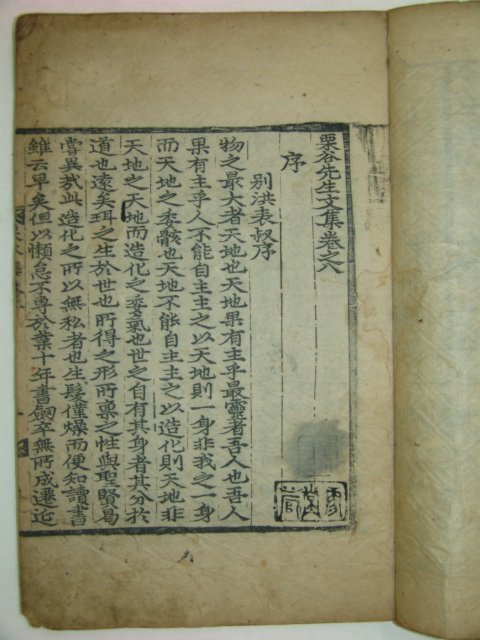 栗谷先生文集卷之六
序
別洪表叔序
物之最大者天地也天地果有主乎最靈者吾人也吾人
果有主乎人不能自主主之以天地則一身非我之一身
而天地之委骸也天地不能自主主之以造化則天地非
天地之天地而造化之委氣也世之自有其身者其分於
道也遠矣珥之生於世也所得之形所禀之性與聖賢曷
嘗異哉此造化之所以無私者也生髮僅燥而便知讀書
雖云早矣但以懶怠不専於業十年書劒卒無所成遷延